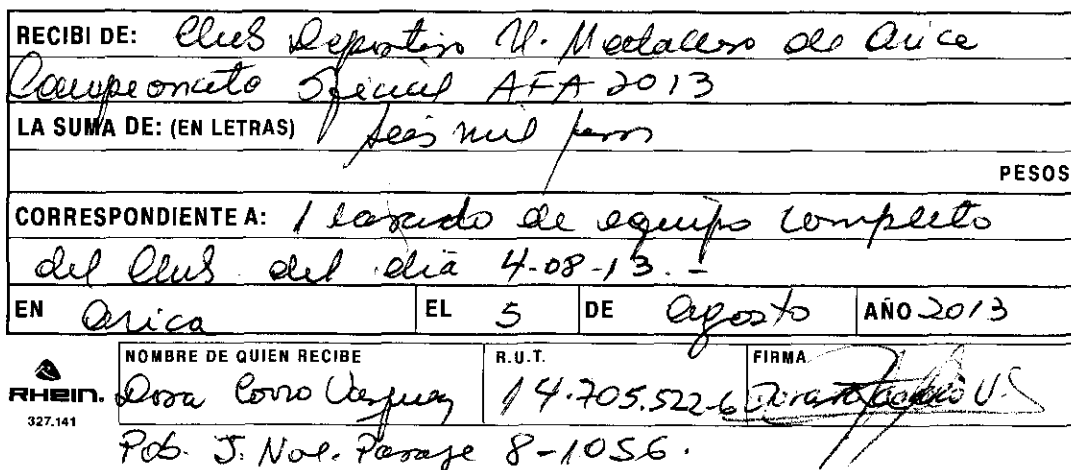 RECIBI DE: Club Deportivo U. Metalero de Arica
Campeonato Oficial AFA 2013
LA SUMA DE: (EN LETRAS) seis mil pesos
PESOS
CORRESPONDIENTE A: 1 lavado de equipo completo
del Club del día 4-08-13.-
EN Arica EL 5 DE Agosto AÑO 2013
NOMBRE DE QUIEN RECIBE R.U.T. FIRMA
RHEIN. Dora Corro Vasquez 14.705.522-6 Dora
327.141
Pob. J. Noe. Pasaje 8-1056.